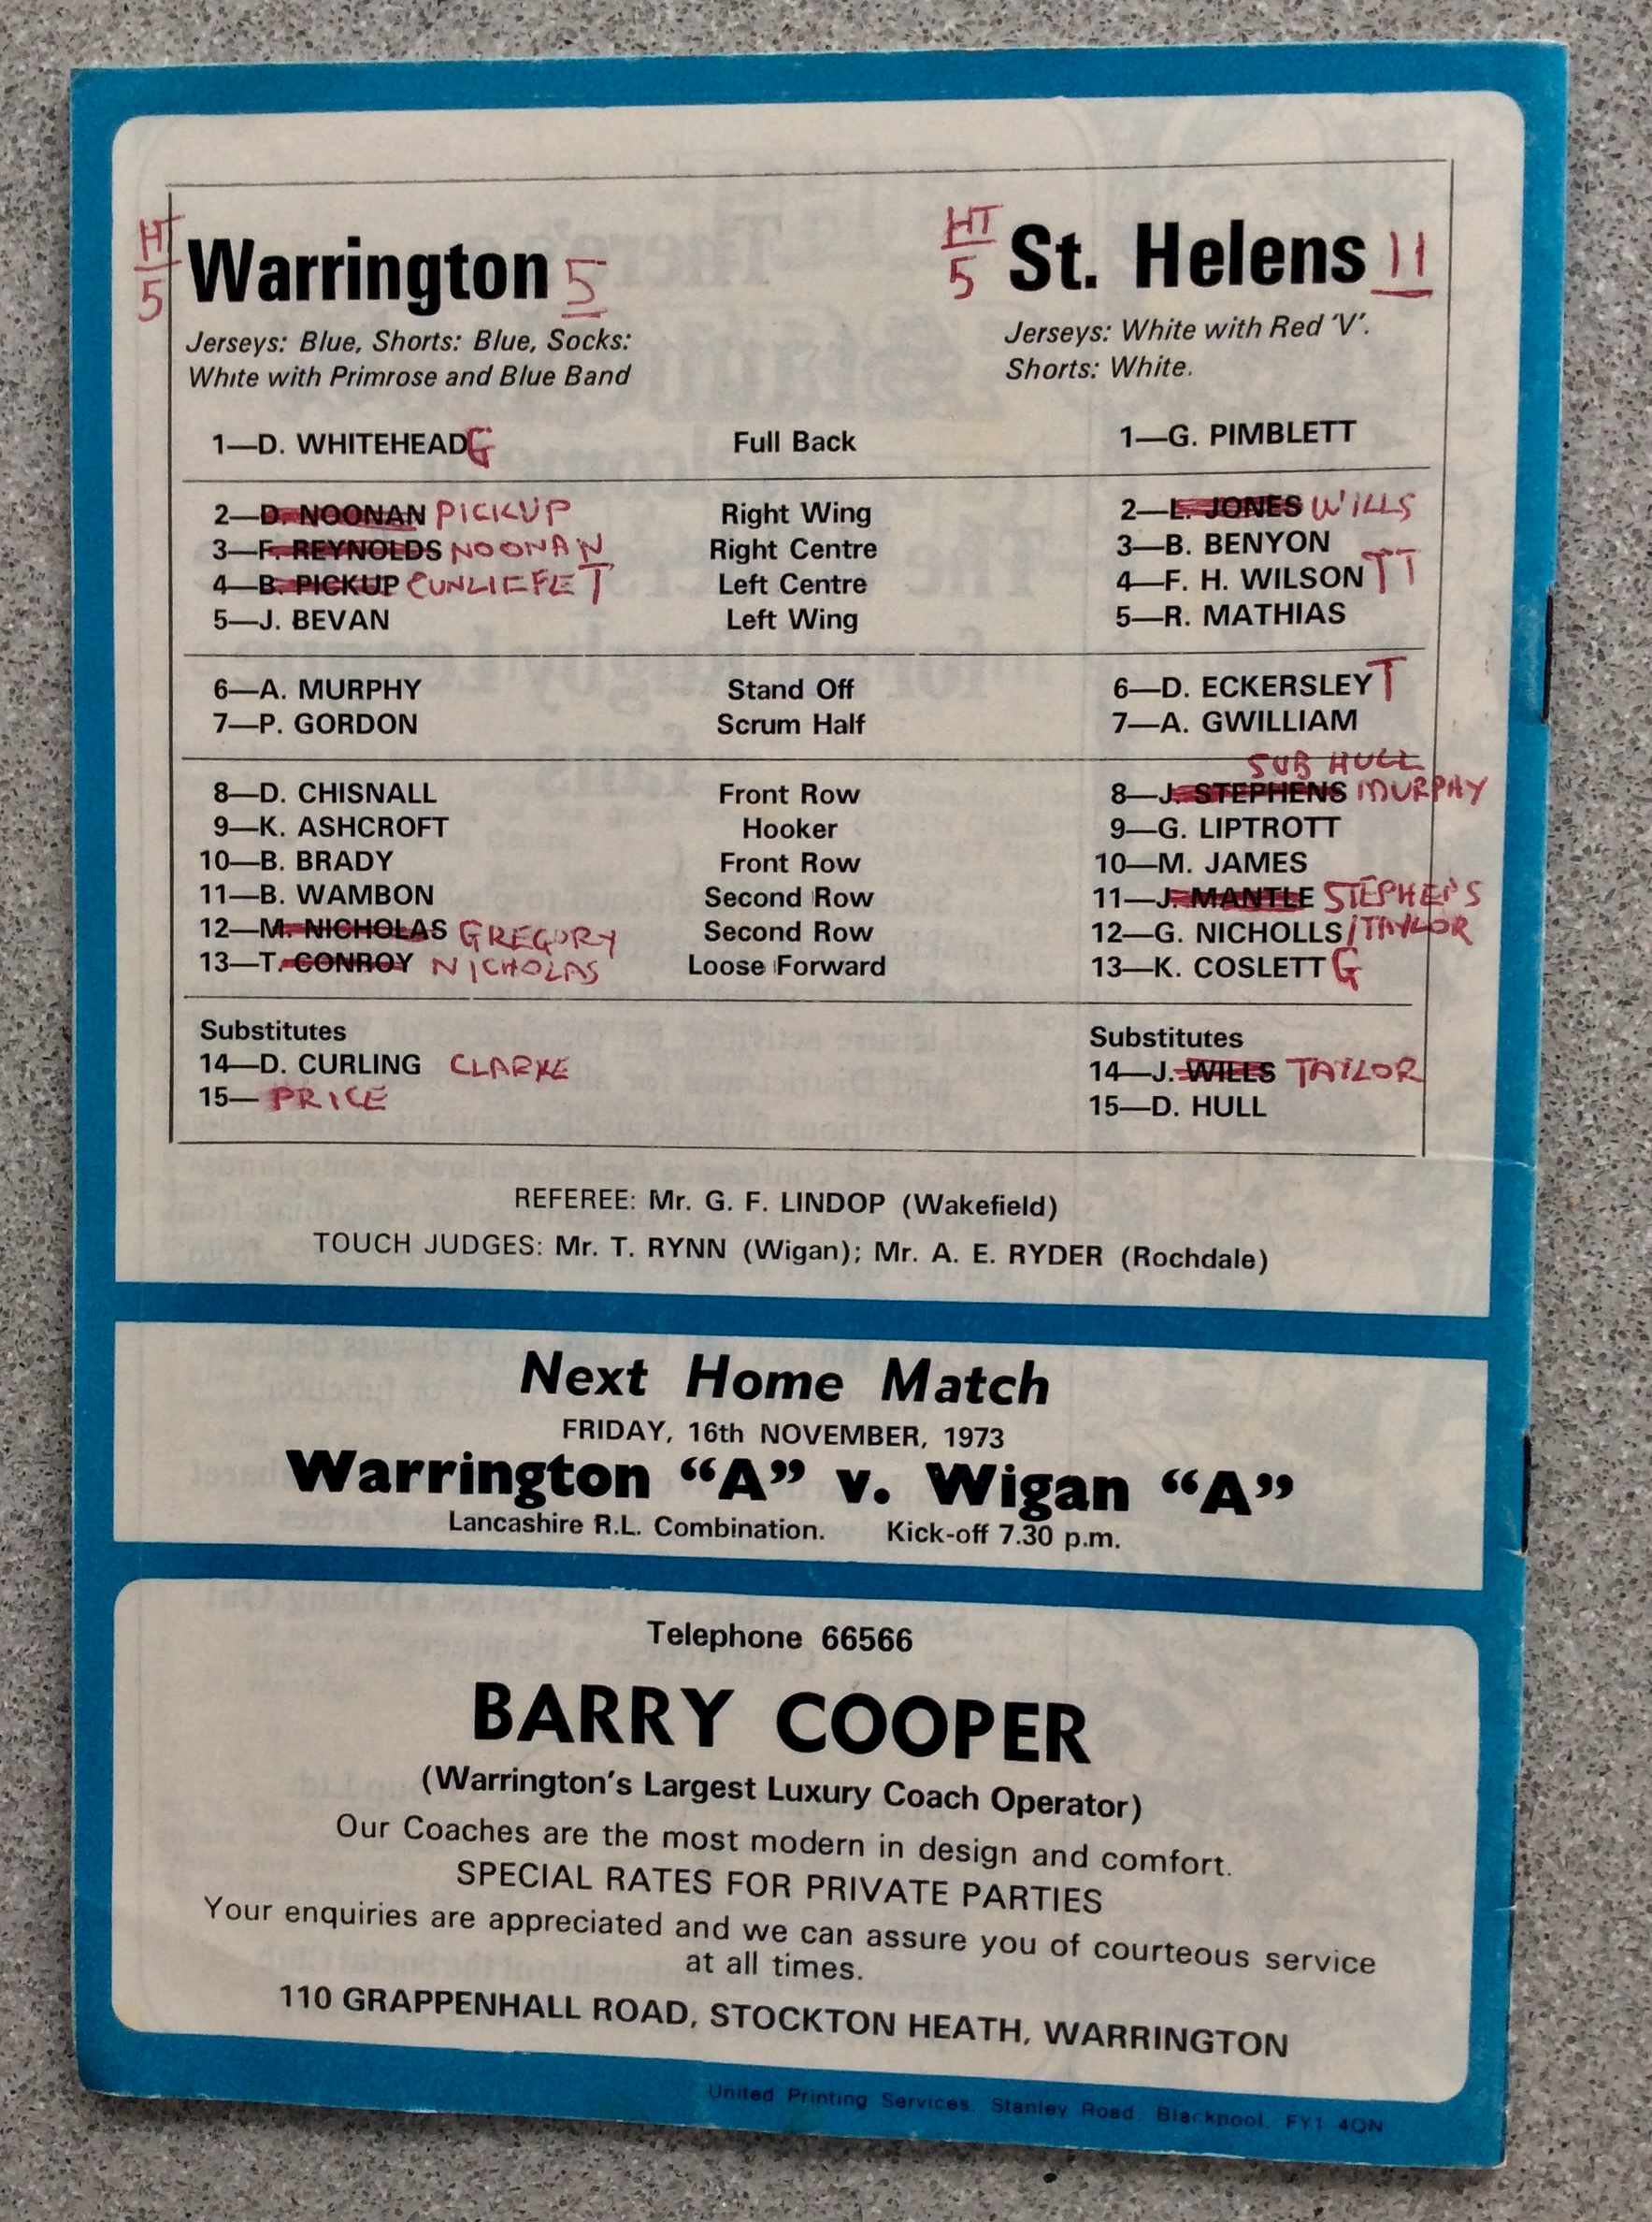 HT
5
Warrington 5
HT
5
St. Helens 11
Jerseys: Blue, Shorts: Blue, Socks:
White with Primrose and Blue Band
Jerseys: White with Red 'V'.
Shorts: White.
1—D. WHITEHEAD G Full Back 1—G. PIMBLETT
2—D. NOONAN PICKUP Right Wing 2—L. JONES WILLS
3—F. REYNOLDS NOONAN Right Centre 3—B. BENYON
4—B. PICKUP CUNLIFFE T Left Centre 4—F. H. WILSON TT
5—J. BEVAN Left Wing 5—R. MATHIAS
6—A. MURPHY Stand Off 6—D. ECKERSLEY T
7—P. GORDON Scrum Half 7—A. GWILLIAM
SUB HULL
8—D. CHISNALL Front Row 8—J. STEPHENS MURPHY
9—K. ASHCROFT Hooker 9—G. LIPTROTT
10—B. BRADY Front Row 10—M. JAMES
11—B. WAMBON Second Row 11—J. MANTLE STEPHENS
12—M. NICHOLAS GREGORY Second Row 12—G. NICHOLLS / TAYLOR
13—T. CONROY NICHOLAS Loose Forward 13—K. COSLETT G
Substitutes Substitutes
14—D. CURLING CLARKE 14—J. WILLS TAYLOR
15— PRICE 15—D. HULL
REFEREE: Mr. G. F. LINDOP (Wakefield)
TOUCH JUDGES: Mr. T. RYNN (Wigan); Mr. A. E. RYDER (Rochdale)
Next Home Match
FRIDAY, 16th NOVEMBER, 1973
Warrington "A" v. Wigan "A"
Lancashire R.L. Combination. Kick-off 7.30 p.m.
Telephone 66566
BARRY COOPER
(Warrington's Largest Luxury Coach Operator)
Our Coaches are the most modern in design and comfort.
SPECIAL RATES FOR PRIVATE PARTIES
Your enquiries are appreciated and we can assure you of courteous service
at all times.
110 GRAPPENHALL ROAD, STOCKTON HEATH, WARRINGTON
United Printing Services, Stanley Road, Blackpool, FY1 4QN